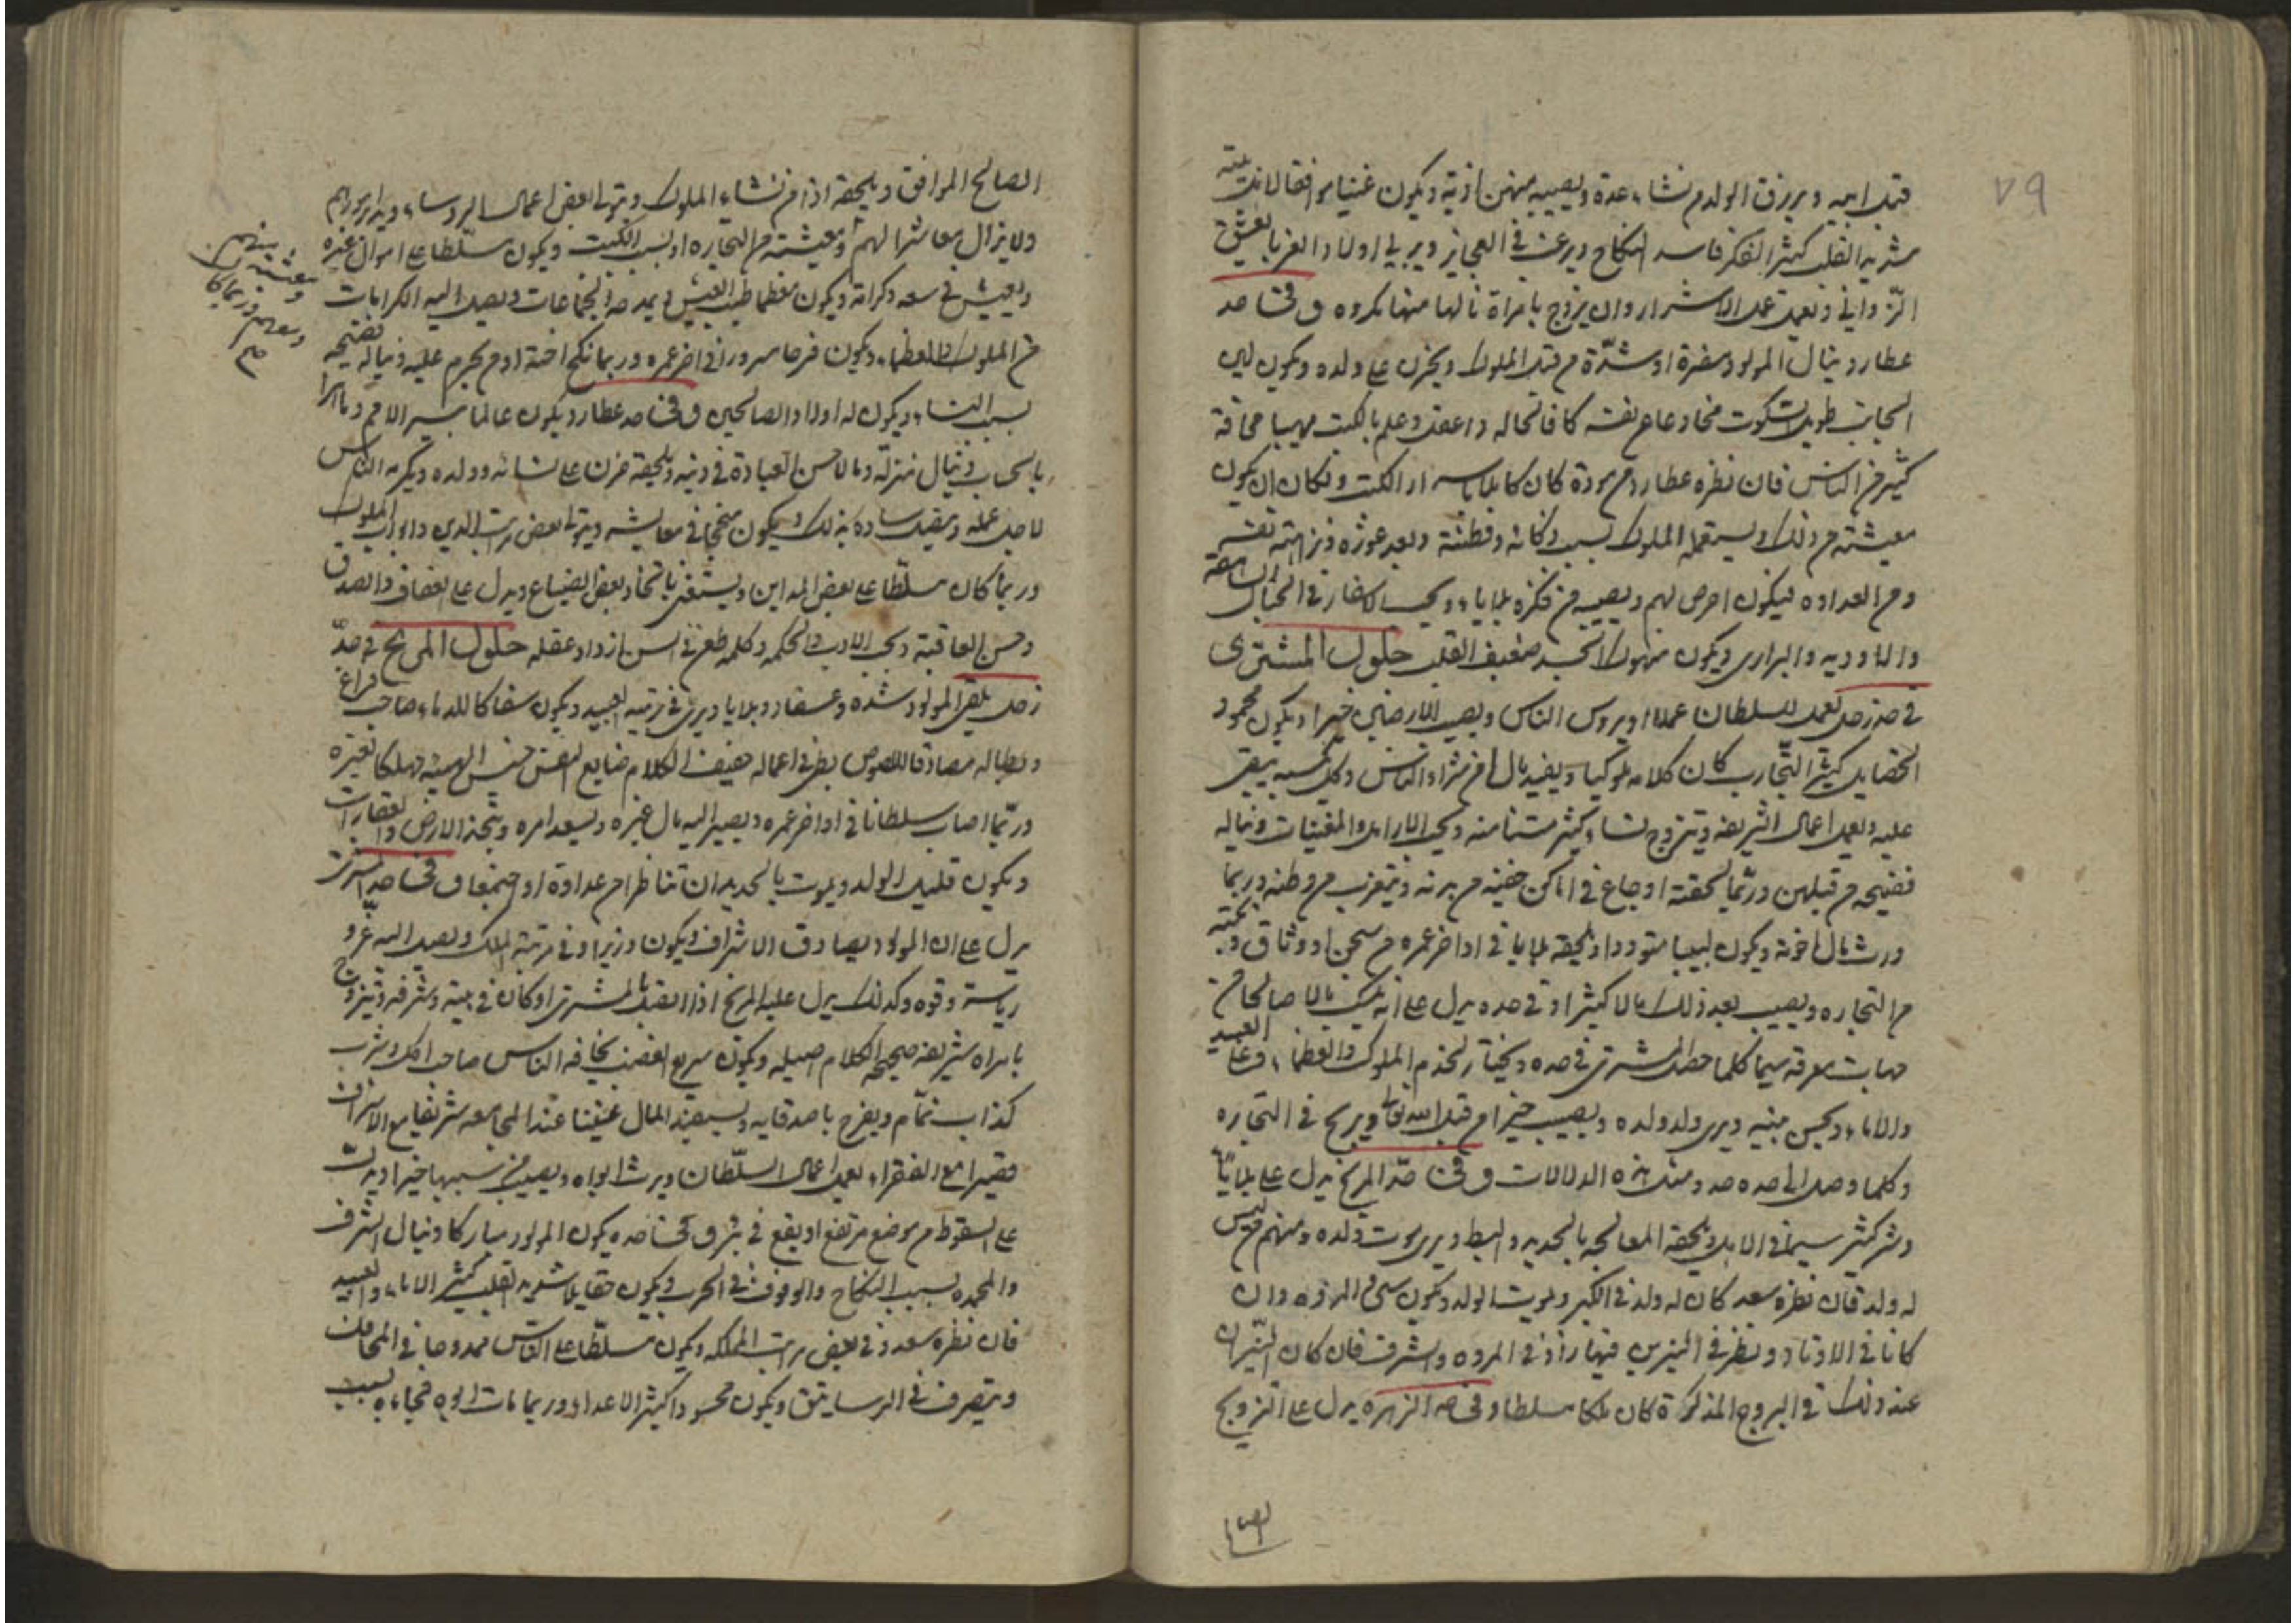 ٧٩
قبل ابيه ويرزق الولد من نساء عدة ويصيبه منهن اذية ويكون غنيا موافقا لاهل بيته
شديد القلب كثير الفكر فاسد النكاح ويرغب في العجايز ويربي اولاد الغربا يعشق
الزواني ويعمل عمل الاشرار وان يزوج بامراة نالها منها مكروه وفى حد
عطارد ينال المولود مضرة او شدّة من قبل الملوك ويحزن على ولده ويكون لين
الجانب طويل السكوت مخادعا نفسه كافا لحاله ذا عقل وعلم بالكتب مهيبا مخافة
كثير من الناس فان نظره عطارد من مودة كان كاتبا باسرار الكتب ولكان ان يكون
معيشته من ذلك ويستعمله الملوك بسبب ذكائه وفطنته وبعد غوره ونزاهة نفسه
ومن العداوه فيكون احرص لهم ويصيبه من فكره بلايا ويحب الاسفار في الجبال الشاهقة
والاودية والبراري ويكون منهوك الجسد ضعيف القلب حلول المشترى
في حد زحل يعمل للسلطان عملا او يروس الناس ويصيب الارضين خيرا ويكون محمود
الخصايل كثير التجارب كان كلامه ملوكيا ويفيد مال من شرار الناس وكل كسبه يبقى
عليه ويعمل اعمال الشريفه ويتزوج نساء كثير مسنا منه ويحب الارامل والمغنيات ويناله
فضيحه من قبلهن وربّما لحقته اوجاع في اماكن خفية من بدنه ويتغرب من وطنه وربما
ورث مال اخوته ويكون لبيبا متوددا ويلحقه بلايا في اواخر عمره من سجن او وثاق ونكبة
من التجاره ويصيب بعد ذلك مالا كثيرا وفي حده يدل على انه يملك مالا صالحا من
جهات معرفة سيما كلما حصل المشتري في حده ويختار لخدم الملوك والعظماء وعلى العبيد
والاماء ويحسن بنيه ويرى ولد ولده ويصيب خيرا من قبل الله تعالى ويربح في التجاره
وكلما وصل الى حده حد ومثل هذه الدلالات وفى حدّ المريخ يدل على بلايا
وشر كثير سيما في الابل ويلحقه المعالجه بالحديد والبط ويرى موت ولده ومنهم من ليس
له ولد فان نظره سعد كان له ولد في الكبر ويموت الولد ويكون سي المروه وان
كانا في الاوتاد ونظر في النيرين فنهارا ذو المروه والشرف فان كان النيران
عند ذلك في البروج المذكرة كان ملكا مسلطا وفى حد الزهره يدل على التزويج
ايضا
الصالح الموافق ويلحقه اذا من نساء الملوك ويتولى بعض اعمال الروساء ويدبر امورهم
ولا يزال معاشرا لهم ومعيشته من التجاره او بسبب الكتب ويكون مسلّطا على اموال غيره
ويعيش في سعه وكرامة ويكون معظما طيب العيش يمدحه الجماعات ويصل اليه الكرامات
من الملوك والعظماء ويكون فرحا مسرورا في اخر عمره وربما نكح اخته او من يحرم عليه ويناله فضيحه
بسبب النساء ويكون له اولاد الصالحين وفى حد عطارد يكون عالما بسير الامم وماهرا
بالحساب وينال منزلة ومالا حسن العبادة في دينه ويلحقه حزن على نسائه وولده ويكرمه الناس
لاجل عمله ويفيد سادة بذلك ويكون منجحا في معايشه ويتولى بعض مراتب الدين وابواب الملوك
وربما كان مسلّطا على بعض المداين ويستغنى باتخاذ بعض الضياع ويدل على العفاف والصدق
وحسن العاقبة ويحب الاداب والحكمه وكلما طعن في السن ازداد عقله حلول المريخ في حدّ
زحل يلقى المولود شده وعسفا وبلايا ويربى في تربية العبيد ويكون سفاكا للدماء صاحب فراغ
وبطاله مصادقا للصوص بطئ في اعماله خفيف الكلام ضايع النفس خسيس الهمة مهلكا لغيره
وربّما اصاب سلطانا في اواخر عمره ويصير اليه مال غيره ويسعد امره ويتخذ الارض والعقارات
ويكون قليل الولد ويموت بالحديد ان تناظرا من عداوة او اجتمعا وفى حد المشتري
يدل على ان المولود يصادق الاشراف ويكون وزيرا وفي مرتبة الملك ويصل اليه عزّ و
رياسة وقوه وكذلك يدل عليه المريخ اذا اتصل بالمشتري او كان في بيته وشرفه ويتزوج
بامراه شريفه صحيحه الكلام اصيله ويكون سريع الغضب يخافه الناس صاحب اكل وشرب
كذاب نمّام ويفرح باصدقايه ويستفيد المال عفيفا عند المجامعه شريفا مع الاشراف
فقيرا مع الفقراء يعمل اعمال السلّطان ويرث ابواه ويصيب من سببها خيرا ويدل
على السقوط من موضع مرتفع او يقع في بئر وفى حده يكون المولود مباركا وينال الشرف
والمحمده بسبب النكاح والوقوف في الحرب ويكون مقاتلا شديد القلب كثير الاماء والعبيد
فان نظره سعد وفي بعض مراتب المملكه ويكون مسلّطا على الناس ممدوحا في المحافل
ويتصرف في الرساتيق ويكون محسودا كثير الاعداء وربما مات ابوه فجاءه بسبب